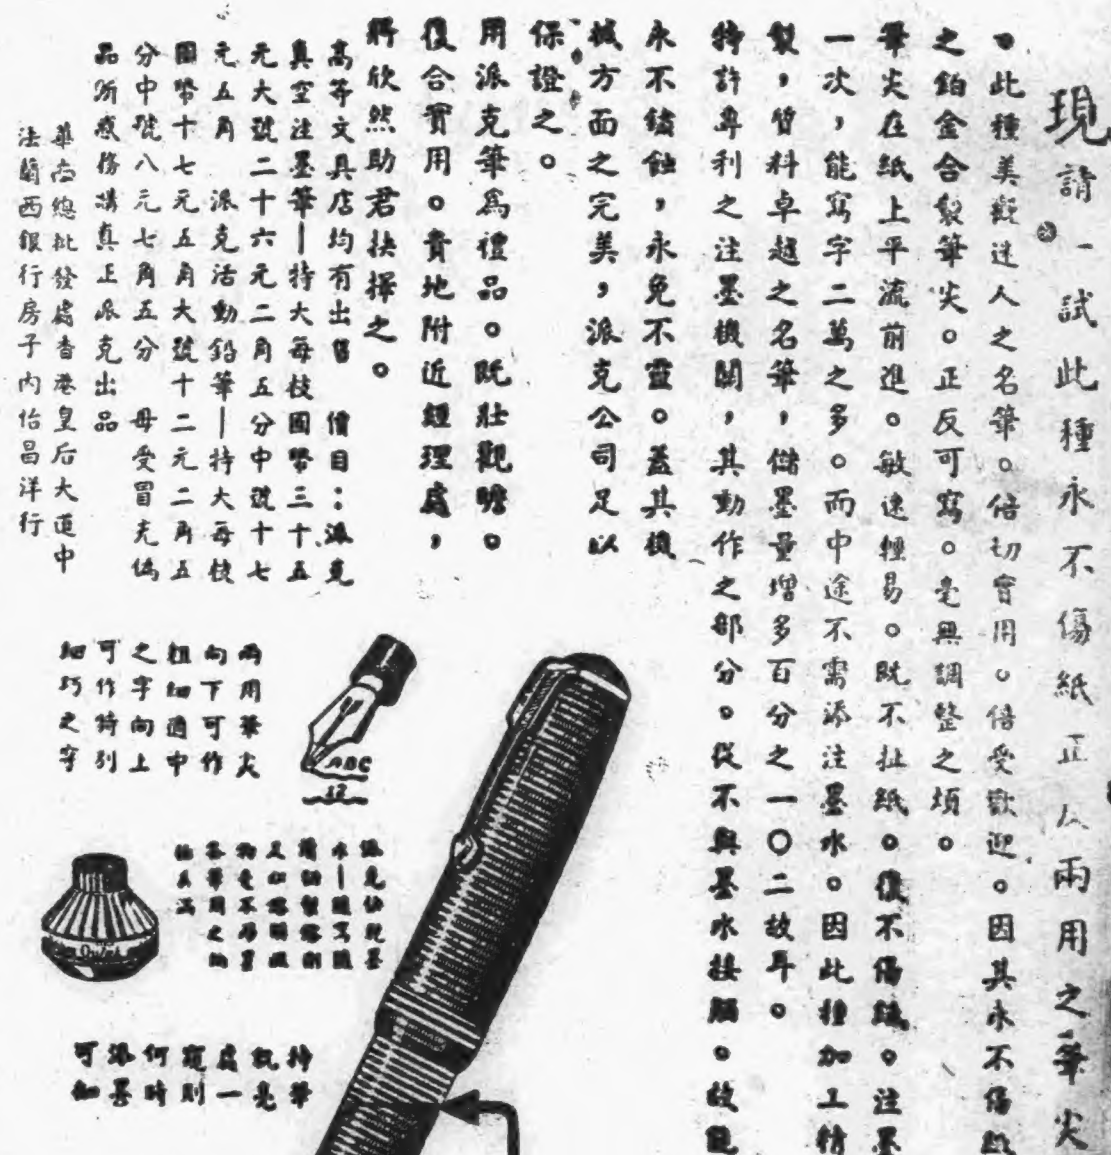 現請一試此種永不傷紙正反兩用之筆尖
此種美觀迷人之名筆。倍切實用。倍受歡迎。因其永不傷紙
之鉑金合製筆尖。正反可寫。毫無調整之煩。
筆尖在紙上平流前進。敏速輕易。既不扯紙。復不傷紙。注墨
一次，能寫字二萬之多。而中途不需添注墨水。因此種加工精
製，質料卓越之名筆，儲墨量增多百分之一〇二故耳。
特許專利之注墨機關，其動作之部分。從不與墨水接觸。故能
永不銹蝕，永免不靈。蓋其機
械方面之完美，派克公司足以
保證之。
用派克筆爲禮品。既壯觀瞻。
復合實用。貴地附近經理處，
將欣然助君抉擇之。
高等文具店均有出售 價目：派克
真空注墨筆｜特大每枝國幣三十五
元大號二十六元二角五分中號十七
元五角 派克活動鉛筆｜特大每枝
國幣十七元五角大號十二元二角五
分中號八元七角五分 毋受冒充僞
品所惑務購真正派克出品
華尚總批發處香港皇后大道中
法蘭西銀行房子內怡昌洋行
兩用筆尖
向下可作
粗細適中
之字向上
可作特別
細巧之字
ABC
12
派克快乾墨
水｜隨寫隨
Quink
持筆
就亮
處一
窺則
何時
添墨
可知